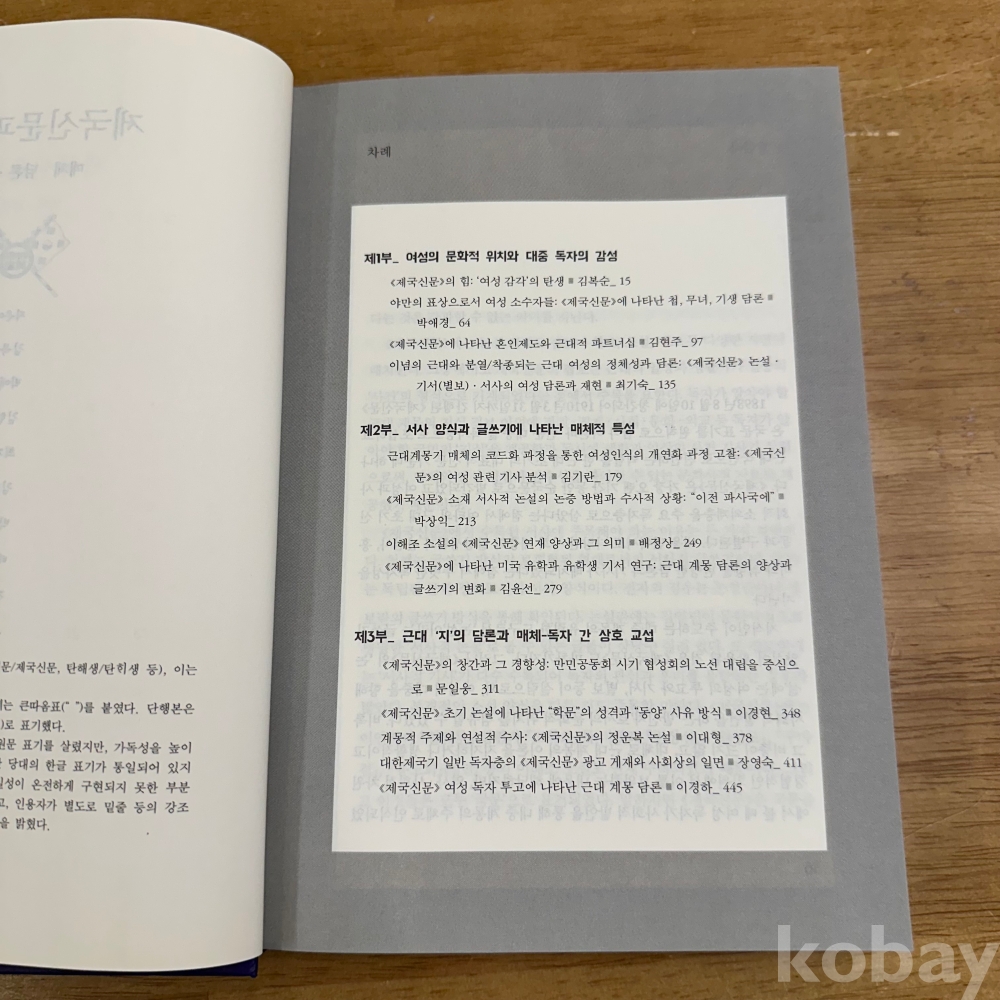 차례
제1부_ 여성의 문화적 위치와 대중 독자의 감성
《제국신문》의 힘: '여성 감각'의 탄생 ■ 김복순_ 15
야만의 표상으로서 여성 소수자들: 《제국신문》에 나타난 첩, 무녀, 기생 담론 ■
박애경_ 64
《제국신문》에 나타난 혼인제도와 근대적 파트너십 ■ 김현주_ 97
이념의 근대와 분열/착종되는 근대 여성의 정체성과 담론: 《제국신문》 논설 ·
기서(별보) · 서사의 여성 담론과 재현 ■ 최기숙_ 135
제2부_ 서사 양식과 글쓰기에 나타난 매체적 특성
근대계몽기 매체의 코드화 과정을 통한 여성인식의 개연화 과정 고찰: 《제국신
문》의 여성 관련 기사 분석 ■ 김기란_ 179
《제국신문》 소재 서사적 논설의 논증 방법과 수사적 상황: "이전 파사국에" ■
박상익_ 213
이해조 소설의 《제국신문》 연재 양상과 그 의미 ■ 배정상_ 249
《제국신문》에 나타난 미국 유학과 유학생 기서 연구: 근대 계몽 담론의 양상과
글쓰기의 변화 ■ 김윤선_ 279
제3부_ 근대 '지'의 담론과 매체-독자 간 상호 교섭
《제국신문》의 창간과 그 경향성: 만민공동회 시기 협성회의 노선 대립을 중심으
로 ■ 문일웅_ 311
《제국신문》 초기 논설에 나타난 "학문"의 성격과 "동양" 사유 방식 ■ 이경현_ 348
계몽적 주제와 연설적 수사: 《제국신문》의 정운복 논설 ■ 이대형_ 378
대한제국기 일반 독자층의 《제국신문》 광고 게재와 사회상의 일면 ■ 장영숙_ 411
《제국신문》 여성 독자 투고에 나타난 근대 계몽 담론 ■ 이경하_ 445
문/제국신문, 탄해생/탄히생 등), 이는
는 큰따옴표(" ")를 붙였다. 단행본은
)로 표기했다.
원문 표기를 살렸지만, 가독성을 높이
당대의 한글 표기가 통일되어 있지
일성이 온전하게 구현되지 못한 부분
고, 인용자가 별도로 밑줄 등의 강조
을 밝혔다.
kobay